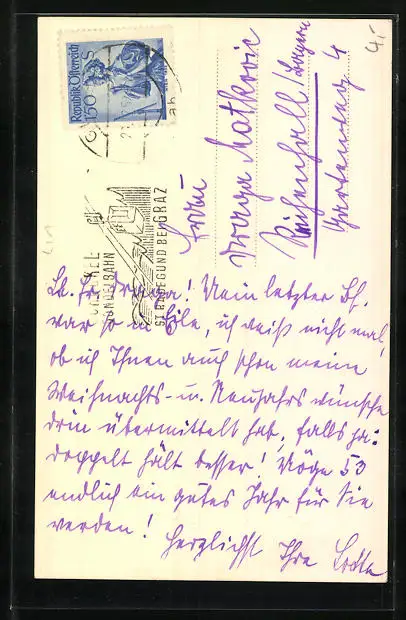 4,-
Republik Österreich
1.50 S
SCHÖCKEL
GONDELBAHN
ST. RADEGUND BEI GRAZ
Frau
Draga Matkovic
Reichenhall / Bayern
Gartenweg 4
Lb. Fr. Draga! Mein letzter Bf.
war so in Eile, ich weiß nicht mal,
ob ich Ihnen auch schon meine
Weihnachts- u. Neujahrs wünsche
drin übermittelt hab, falls ja:
doppelt hält besser! Möge 53
endlich ein gutes Jahr für Sie
werden!
Herzlichst Ihre Lotte